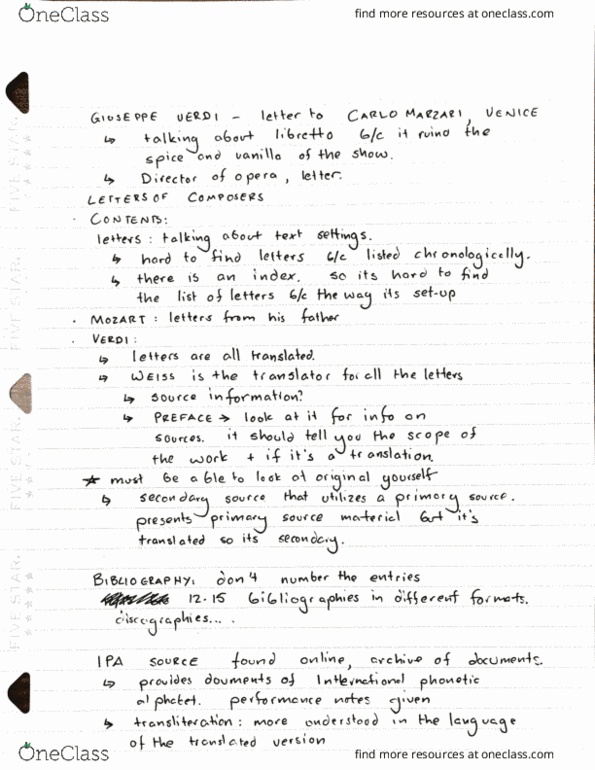 OneClass
find more resources at oneclass.com
GIUSEPPE VERDI - letter to CARLO MARZARI, VENICE
↳ talking about libretto b/c it ruind the
spice and vanilla of the show.
↳ Director of opera, letter.
LETTERS OF COMPOSERS
· CONTENTS:
letters: talking about text settings.
↳ hard to find letters b/c listed chronologically.
↳ there is an index. so its hard to find
the list of letters b/c the way its set-up
· MOZART: letters from his father
· VERDI:
↳ letters are all translated.
↳ WEISS is the translator for all the letters
↳ source information?
↳ PREFACE → look at it for info on
sources. it should tell you the scope of
the work + if it's a translation.
★ must be able to look at original yourself
↳ secondary source that utilizes a primary source.
presents primary source material but it's
translated so its secondary.
BIBLIOGRAPHY: don't number the entries
12-15 bibliographies in different formats.
discographies....
IPA SOURCE found online, archive of documents.
↳ provides douments of International phonetic
alphabet. performance notes given
↳ transliteration: more understood in the language
of the translated version
FIVE STAR.
FIVE STAR.
FIVE STAR.
FIVE STAR.
OneClass
find more resources at oneclass.com